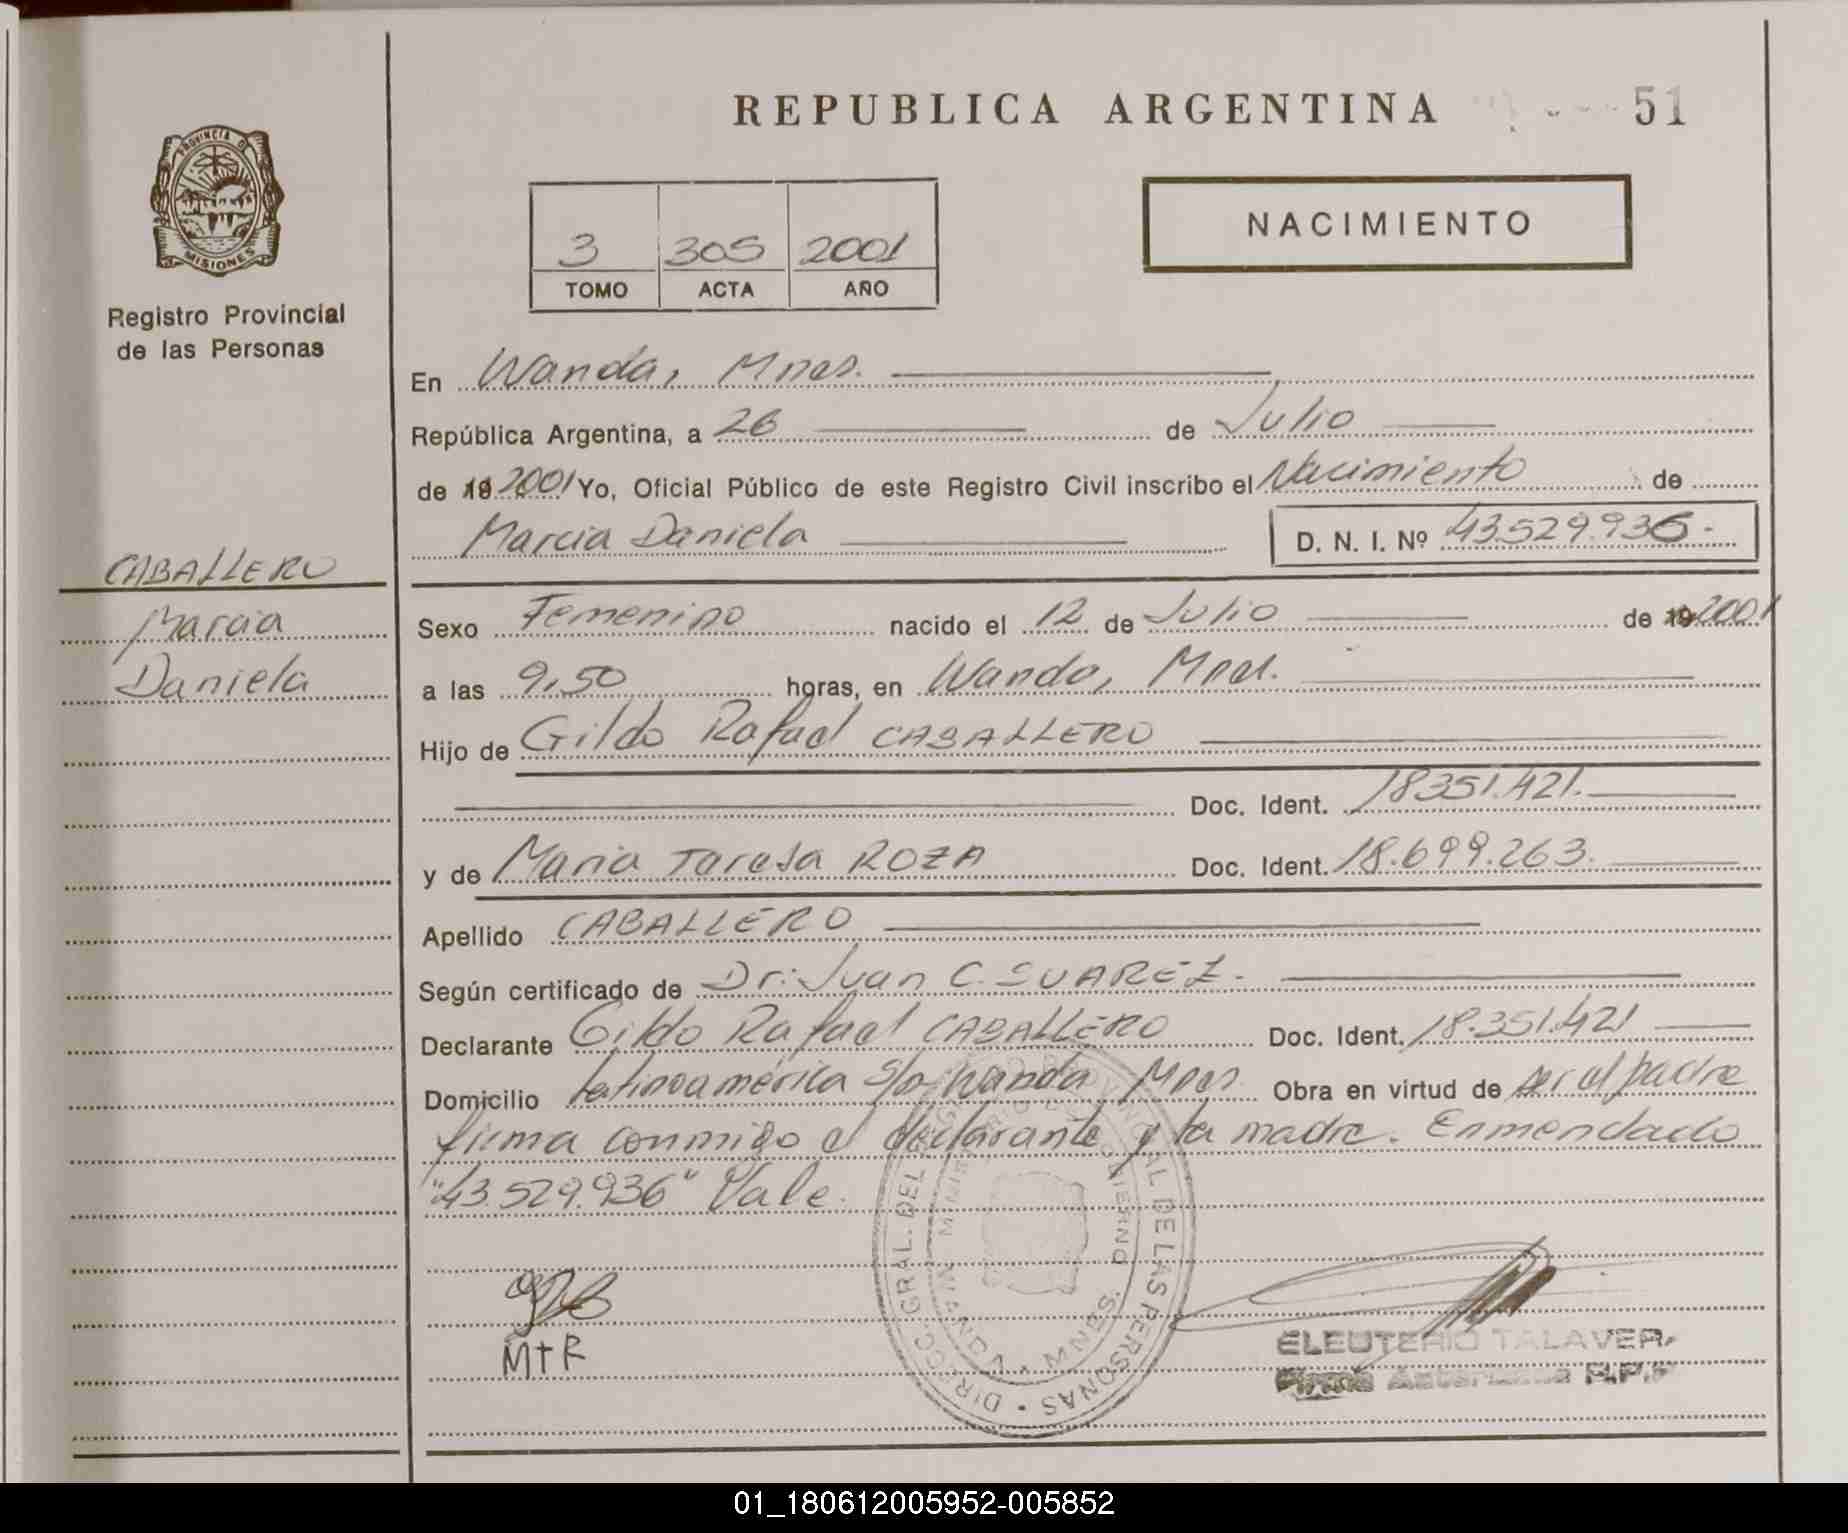 REPUBLICA ARGENTINA 51
PROVINCIA DE
MISIONES
Registro Provincial
de las Personas
3 305 2001
TOMO ACTA AÑO
NACIMIENTO
En Wanda, Mnes.
República Argentina, a 26 de Julio
de 19 2001 Yo, Oficial Público de este Registro Civil inscribo el Nacimiento de
Marcia Daniela D. N. I. Nº 43.529.936.-
CABALLERO
Marcia
Daniela
Sexo Femenino nacido el 12 de Julio de 19 2001
a las 9,50 horas, en Wanda, Mnes.
Hijo de Gildo Rafael CABALLERO
Doc. Ident. 18351.421.
y de Maria Teresa ROZA Doc. Ident. 18.699.263.
Apellido CABALLERO
Según certificado de Dr: Juan C. SUAREZ.
Declarante Gildo Rafael CABALLERO Doc. Ident. 18.351.421
Domicilio Latinoamérica s/n Wanda Mnes Obra en virtud de ser el padre
firma conmigo el declarante y la madre. Enmendado
"43.529.936" Vale.
MTR
DIRECC. GRAL. DEL REGISTRO PROVINCIAL DE LAS PERSONAS
MINISTERIO DE GOBIERNO
WANDA MNES.
ELEUTERIO TALAVERA
Firma Autorizada R.P.P
01_180612005952-005852